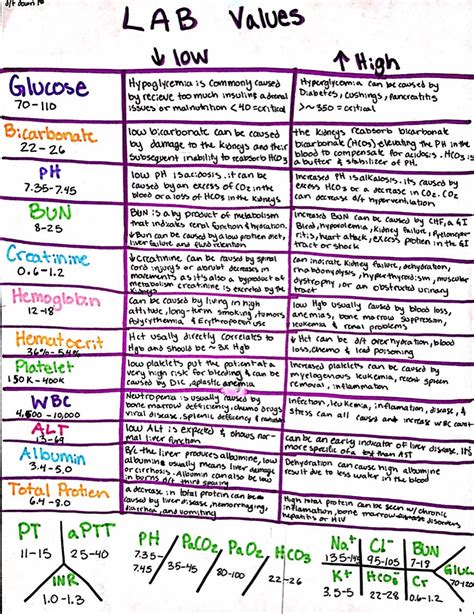 LAB Values
↓ low
↑ High
Glucose
70-110
Hypoglycemia is commonly caused
by recieve too much insulin, adrenal
issues or malnutrition <40 = critical
Hyperglycemia can be caused by
Diabetes, cushings, pancreatitis
>~350 = critical
Bicarbonate
22-26
low bicarbonate can be caused
by damage to the kidneys and their
subsequent inability to reabsorb HCO3
the kidneys reabsorb bicarbonate
bicarbonate (HCO3) elevating the PH in the
blood to compensate for acidosis. HCO3 is
a buffer & stabilizer of PH.
PH
7.35-7.45
low PH is acidosis. it can be
caused by an excess of CO2 in the
blood or a loss of HCO3 in the kidneys
increased PH is alkalosis. its caused by
excess HCO3 or a decrease in CO2. CO2
can decrease d/t hyperventilation
BUN
8-25
BUN is a by product of metabolism
that indicates renal function & hydration.
↓ Bun can be caused by a low protien diet,
liver failure and fluid retention.
increased BUN can be caused by CHF, a GI
Bleed, hypovolemia, kidney failure,
ritis, heart attack, excess protien in the GI
tract or shock
Creatinine
0.6-1.2
↓ Creatinine can be caused by spinal
cord injurys or abrupt decreases in
movements as its also a byproduct of
metabolism creatinine is excreted by the
kidneys
can indicate Kidney failure, dehydration,
rhabdomyolysis, hyperthyroidism, muscular
dystrophy, or an obstructed urinary
tract
Hemoglobin
12-18
can be caused by living in high
altitude, long-term smoking, tumors
Polycythemia & Erythropoietin use
low Hgb usually caused by blood loss,
anemias, bone marrow suppression,
leukemia & renal problems
Hematocrit
36%-54%
Hct usually directly correlates to
Hgb and should be ~3x Hgb
↓ Hct can be d/t over hydration, blood
loss, chemo & lead poisoning
Platelet
150K-400K
low platelets put the patient at a
very high risk for bleeding & can be
caused by DIC, aplastic anemia
Increased platelets can be caused by
myelogenous leukemia, recent spleen
removal, inflammation
WBC
4,500-10,000
Neutropenia is usually caused by
bone marrow deficiency, chemo drugs
viral disease, splenic deficiency &
infection, leukemia, inflammation, disease, &
stress can all caused and increase WBC count
ALT
13-69
low ALT is expected & shows nor-
mal liver function
can be an early indicator of liver disease. Its
more specific of a test than AST
Albumin
3.4-5.0
B/c the liver produces albumine, low
albumine usually means liver damage
or cirrhosis. Albumin can also be low
in burns d/t third spacing
Dehydration can cause high albumine
result due to less water in the blood
Total Protien
6.4-8.0
a decrease in total protein can be
caused by liver disease, hemorraging,
diarrhea, and vomiting
High total protein can be seen w/ chronic
inflammation, bone marrow disease
hepatitis or HIV
PT
11-15
aPTT
25-40
INR
1.0-1.3
PH
7.35-
7.45
PaCO2
35-45
PaO2
80-100
HCO3
22-26
Na+
135-145
Cl-
95-105
BUN
7-18
K+
3.5-5
HCO3
22-28
Cr
GLUC
70-110